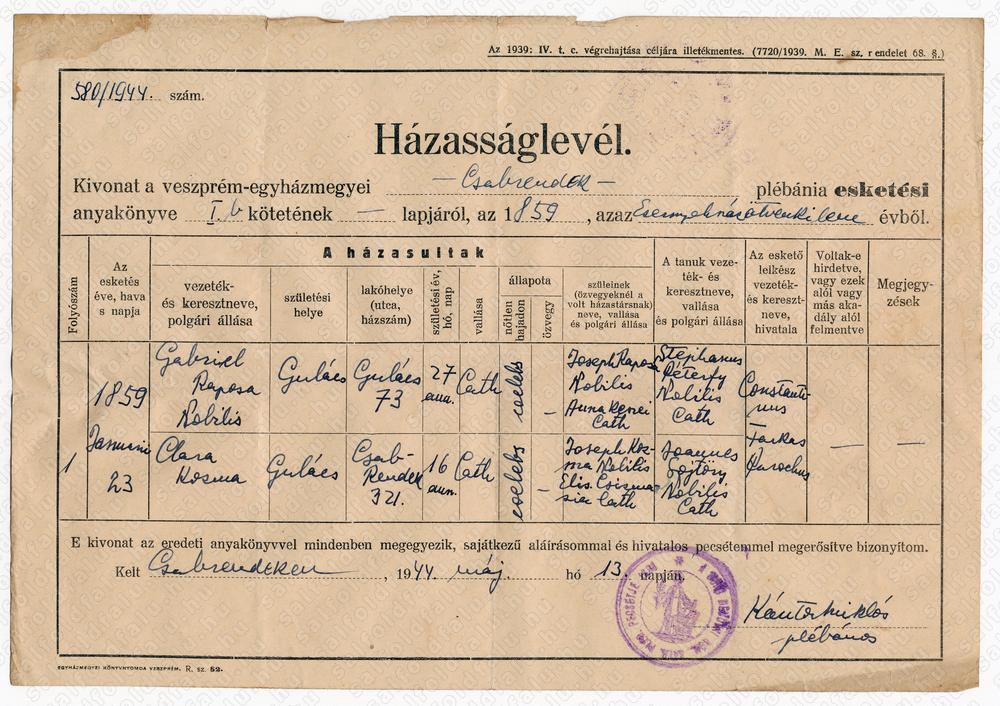 Az 1939: IV. t. c. végrehajtása céljára illetékmentes. (7720/1939. M. E. sz. rendelet 68. §.)
580/1944. szám.
Házasságlevél.
Kivonat a veszprém-egyházmegyei — Csabrendek — plébánia esketési
anyakönyve I. b kötetének — lapjáról, az 1859, azaz Ezernyolcszázötvenkilenc évből.
Folyószám
Az esketés éve, hava s napja
A házasultak
vezeték- és keresztneve, polgári állása
születési helye
lakóhelye (utca, házszám)
születési év, hó, nap
vallása
állapota
nőtlen hajadon
özvegy
szüleinek (özvegyeknél a volt házastársnak) neve, vallása és polgári állása
A tanuk vezeték- és keresztneve, vallása és polgári állása
Az eskető lelkész vezeték- és keresztneve, hivatala
Voltak-e hirdetve, vagy ezek alól vagy más akadály alól felmentve
Megjegyzések
1
1859 Januarii 23
Gabriel Raposa Nobilis
Gulács
Gulács 73
27 ann.
Cath
coelebs
—
Joseph Raposa Nobilis Anna Cath
Stephanus Péterfy Nobilis Cath
Constantinus Farkas Parochus
—
—
Clara Kosma
Gulács
Csab-Rendek 321.
16 ann.
Cath
coelebs
—
Joseph Kozma Nobilis Elis. Csizmazia Cath
Joannes Gojtóry Nobilis Cath
E kivonat az eredeti anyakönyvvel mindenben megegyezik, sajátkezű aláírásommal és hivatalos pecsétemmel megerősítve bizonyítom.
Kelt Csabrendeken, 1944 máj. hó 13. napján.
Kántor Miklós
plébános
EGYHÁZMEGYEI KÖNYVNYOMDA VESZPRÉM. R. sz. 52.